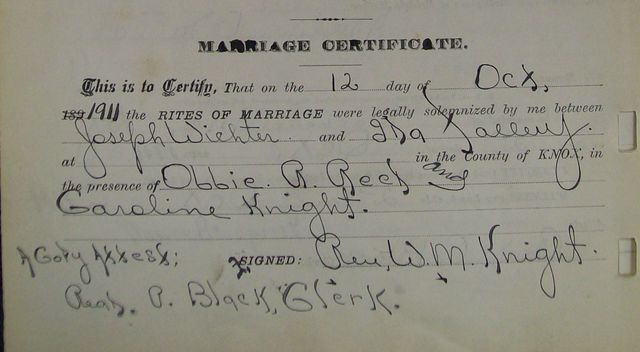 MARRIAGE CERTIFICATE.
This is to Certify, That on the 12 day of Oct,
189 1911 the RITES OF MARRIAGE were legally solemnized by me between
Joseph Wichter and Ida Talley.
at in the County of KNOX, in
the presence of Obbie. R. Reed and
Caroline Knight.
A Copy Attest; SIGNED: Rev. W. M. Knight.
R. Black, Clerk.